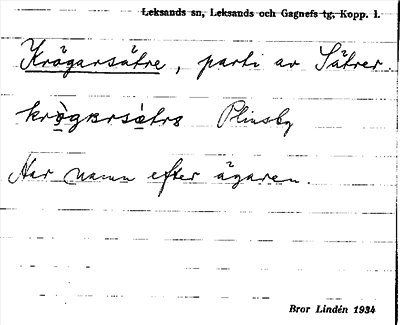 Leksands sn, Leksands och Gagnefs tg, Kopp. l.
Krögarsätre, parti av Sätrer.
Plinsby
Har namn efter ägaren.
Bror Lindén 1934